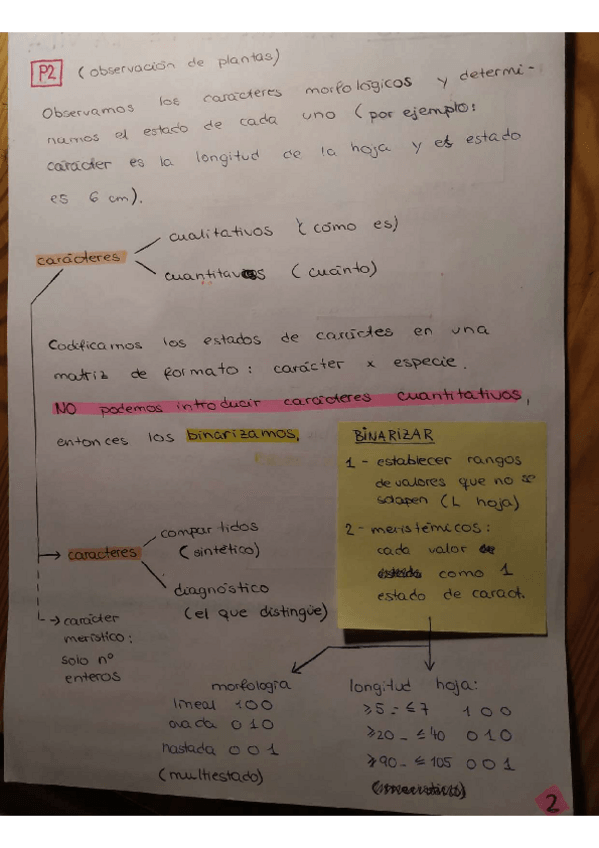 P2 (observación de plantas)
Observamos los carácteres morfológicos y determi-
namos el estado de cada uno (por ejemplo:
carácter es la longitud de la hoja y el estado
es 6 cm).
carácteres
cualitativos (cómo es)
cuantitativos (cuánto)
Codificamos los estados de carácteres en una
matriz de formato: carácter x especie.
NO podemos introducir carácteres cuantitativos,
entonces los binarizamos.
BINARIZAR
1 - establecer rangos
de valores que no se
solapen (L hoja)
2 - meristémicos:
cada valor
como 1
estado de caract.
caracteres
compartidos
(sintético)
diagnóstico
(el que distingüe)
carácter
merístico:
solo nº
enteros
morfología
lineal 100
ovada 010
hastada 001
(multiestado)
longitud hoja:
≥5 - ≤7 100
≥20 - ≤40 010
≥90 - ≤105 001
2